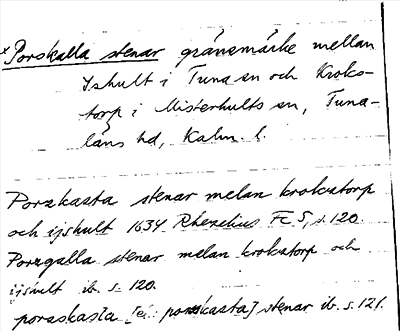 x Porskalla stenar gränsmärke mellan
Ishult i Tuna sn och Kroks-
torp i Misterhults sn, Tuna-
läns hd, Kalm. l.
Porzkasta stenar melan krokstorp
och ijshult 1634 Rhezelius Fc 5, s. 120.
Porzgalla stenar melan krokstorp och
ijshult ib. s. 120.
poraskasta [ej: porskasta] stenar ib. s. 121.